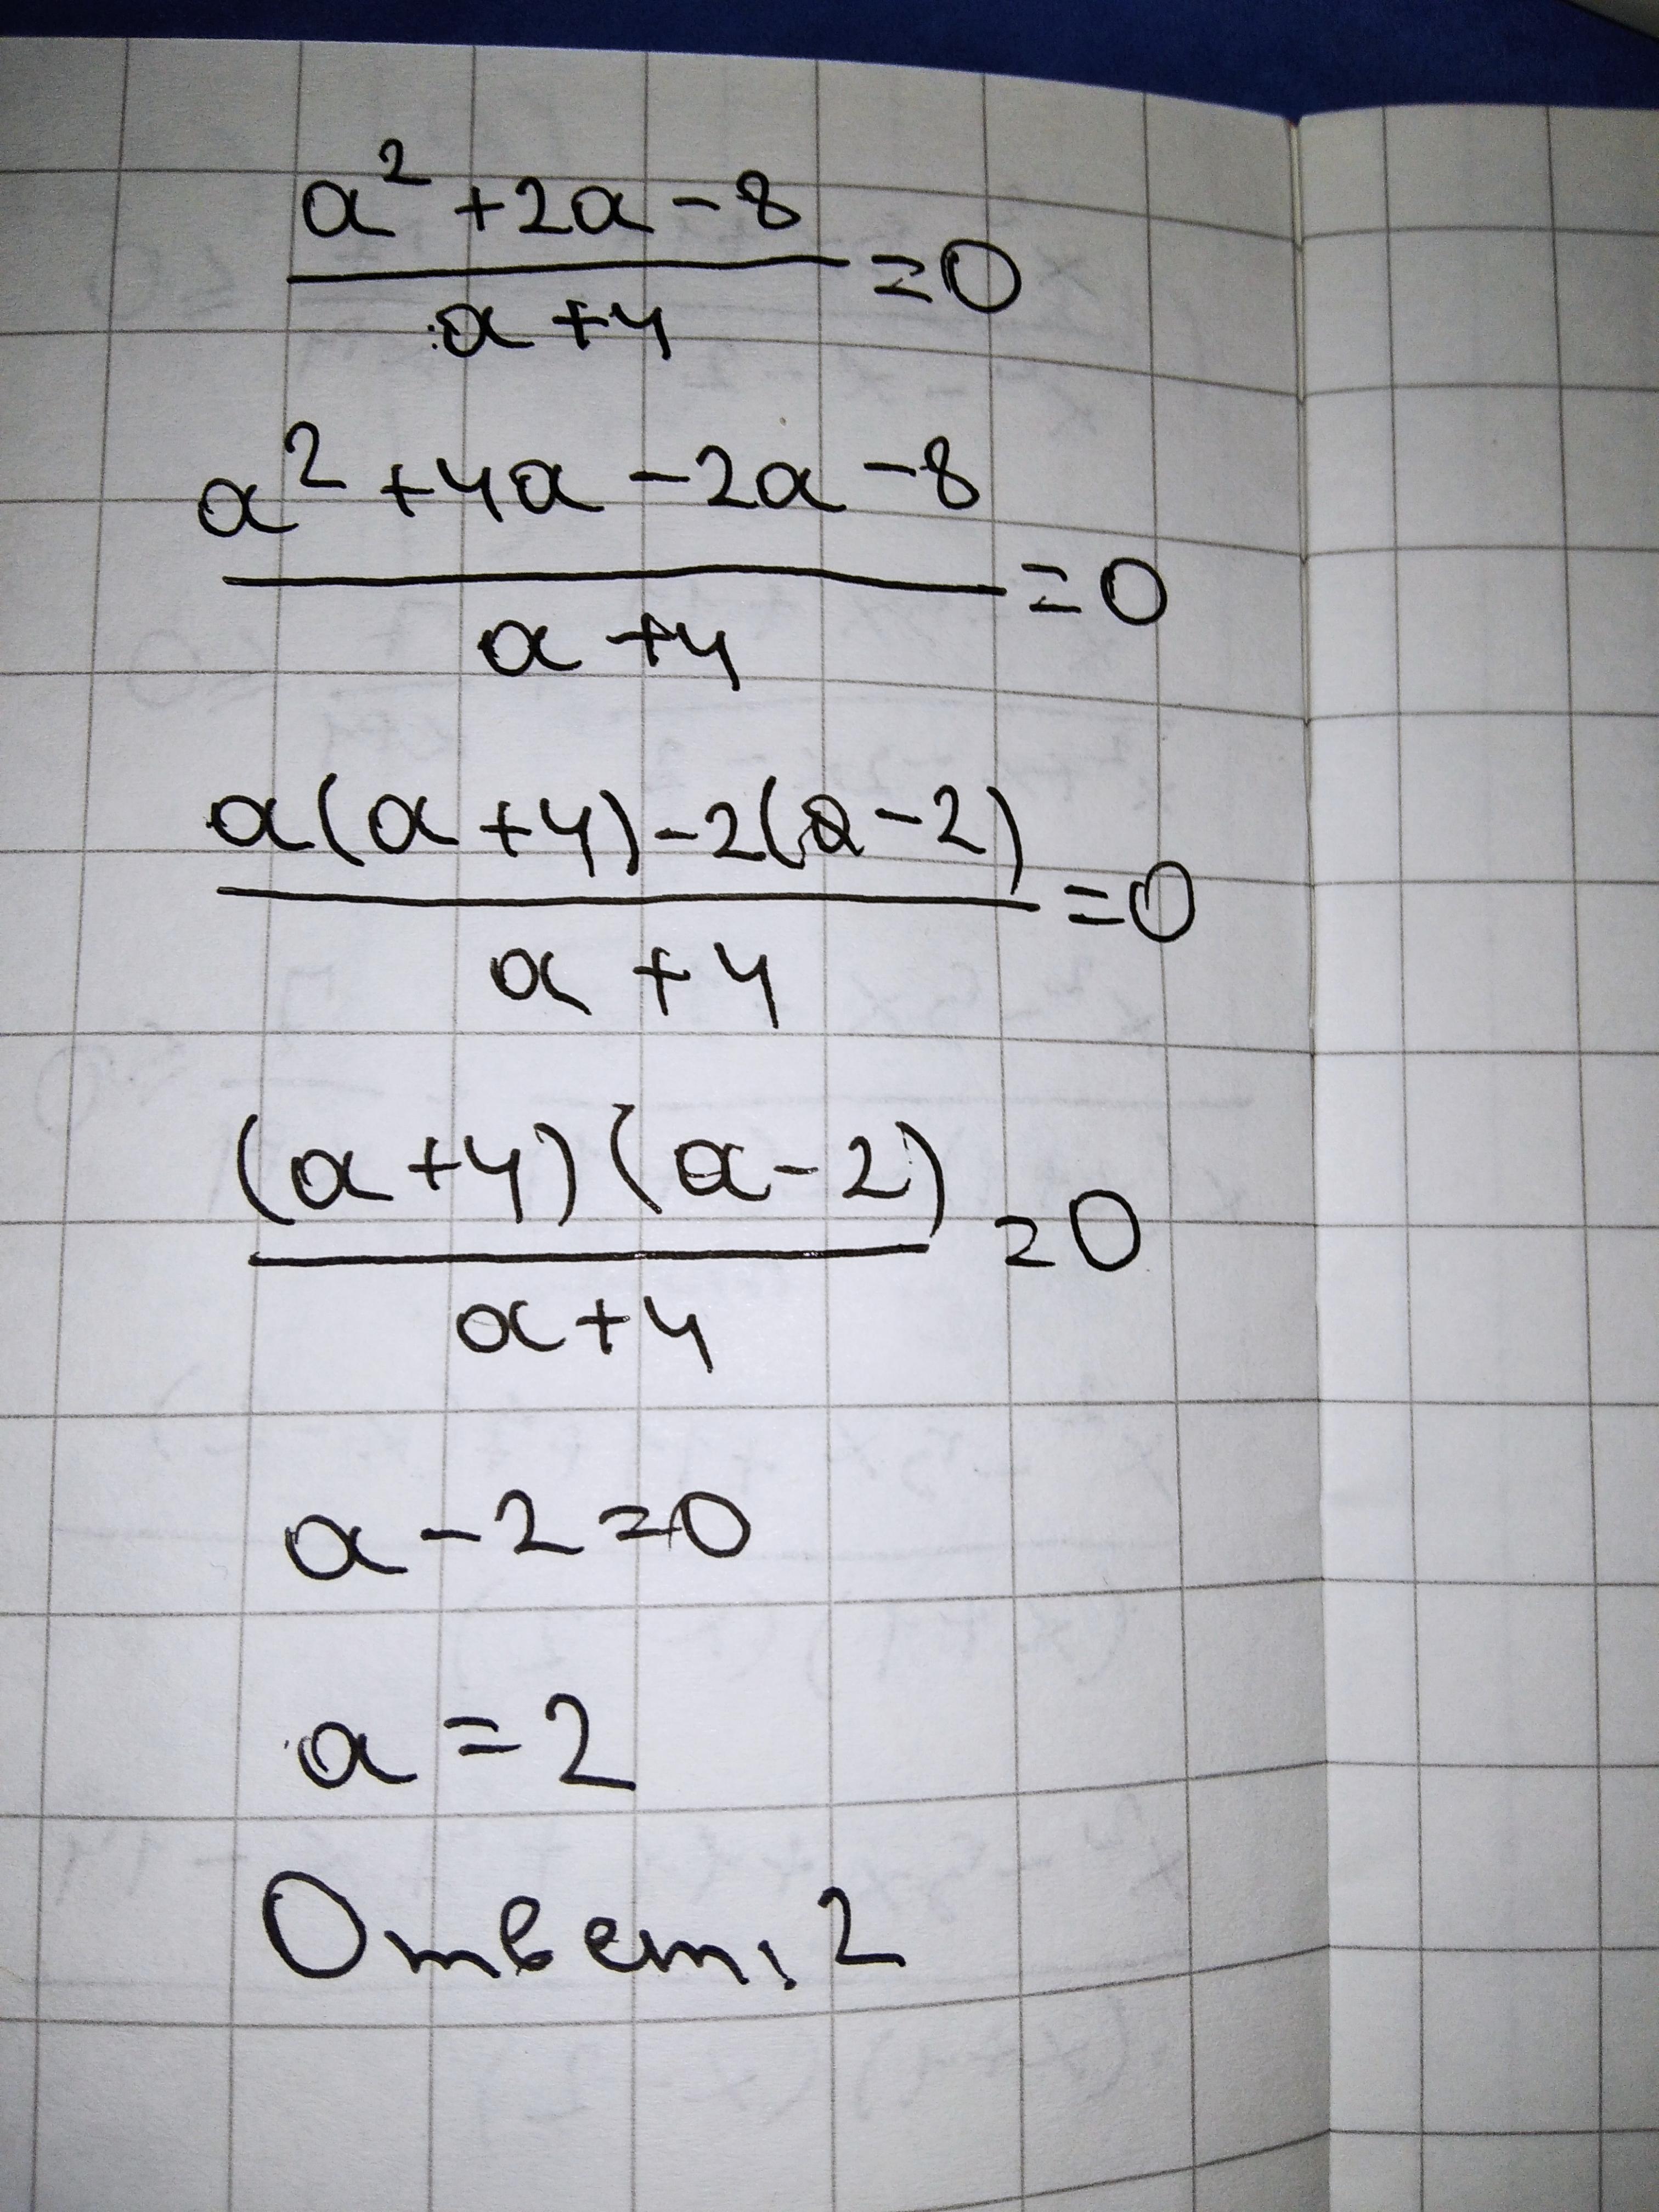 a² +2a -8
=0
a +4
a² +4a -2a -8
=0
a +4
a(a +4) -2(a -2)
=0
a +4
(a +4)(a -2)
=0
a+4
a -2 =0
a = 2
Ответ: 2